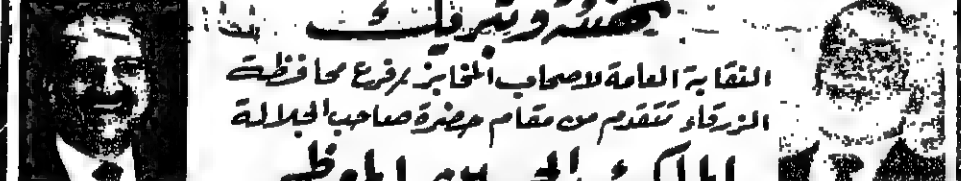 تهنئة وتبريك
النقابة العامة لاصحاب المخابز / فرع محافظة
الزرقاء تتقدم من مقام حضرة صاحب الجلالة
الملك الحسين المعظم